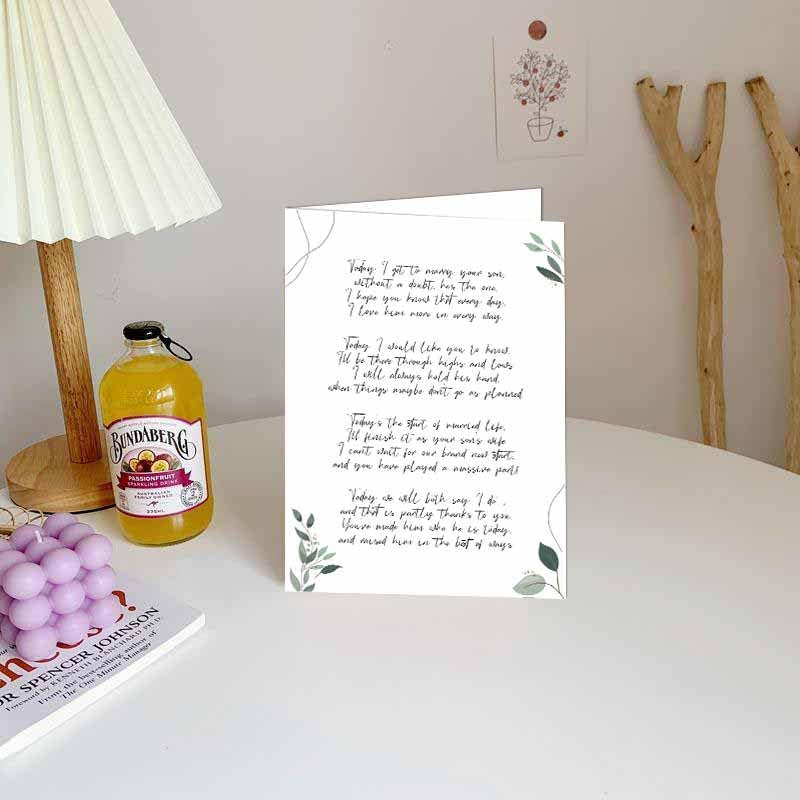 Today, I get to marry your son,
without a doubt, hes the one,
I hope you know that every day,
I love him more in every way.
Today, I would like you to know.
I'll be there through highs and lows
I will always hold his hand,
when things maybe don't go as planned
Today's the start of married life,
I'll finish it as your sons wife
I cant wait for our brand new start,
and you have played a massive part
Today we will both say 'I do',
and that is partly thanks to you.
You've made him who he is today,
and raised him in the best of ways
BUNDABERG
PASSIONFRUIT
SPARKLING DRINK
AUSTRALIAN
FAMILY OWNED
375mL
Cheese?
OR SPENCER JOHNSON
Foreword by KENNETH BLANCHARD PH.D.
From the best-selling author of
The One Minute Manager